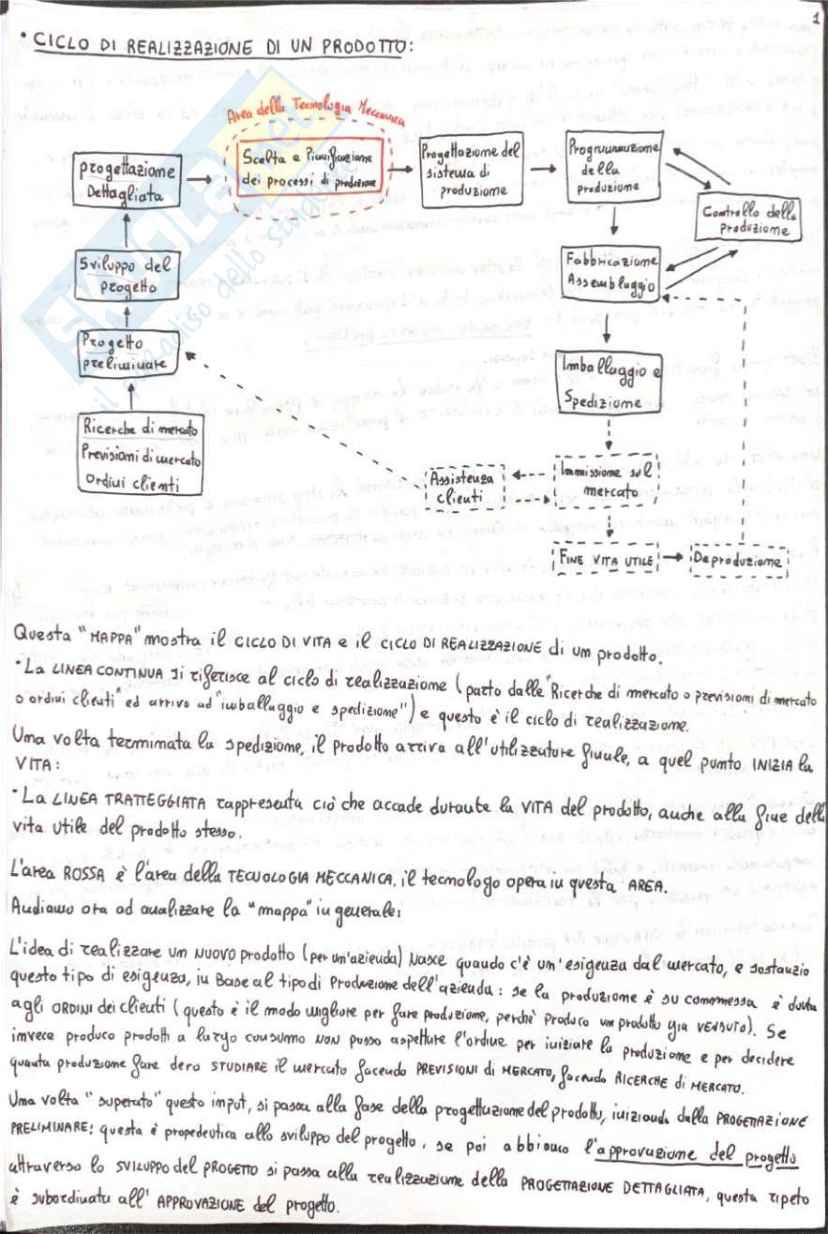 1
• CICLO DI REALIZZAZIONE DI UN PRODOTTO:
Area della Tecnologia Meccanica
Progettazione
Dettagliata
Scelta e Pianificazione
dei processi di produzione
Progettazione del
sistema di
produzione
Programmazione
della
produzione
Controllo della
Produzione
Sviluppo del
progetto
Fabbricazione
Assemblaggio
Progetto
preliminare
Imballaggio e
Spedizione
Ricerche di mercato
Previsioni di mercato
Ordini clienti
Assistenza
clienti
Immissione sul
mercato
FINE VITA UTILE
Deproduzione
SKUOLA.net
il paradiso dello studente
Questa "MAPPA" mostra il CICLO DI VITA e il CICLO DI REALIZZAZIONE di un prodotto.
• La LINEA CONTINUA si riferisce al ciclo di realizzazione (parto dalle "Ricerche di mercato o previsioni di mercato
o ordini clienti" ed arrivo ad "imballaggio e spedizione") e questo è il ciclo di realizzazione.
Una volta terminata la spedizione, il Prodotto arriva all'utilizzatore finale, a quel punto INIZIA la
VITA:
• La LINEA TRATTEGGIATA rappresenta ciò che accade durante la VITA del prodotto, anche alla fine della
vita utile del prodotto stesso.
L'area ROSSA è l'area della TECNOLOGIA MECCANICA, il tecnologo opera in questa AREA.
Andiamo ora ad analizzare la "mappa" in generale:
L'idea di realizzare un NUOVO prodotto (per un'azienda) NASCE quando c'è un'esigenza dal mercato, e sostanzio
questo tipo di esigenza, in Base al tipo di Produzione dell'azienda: se la produzione è su commessa è dovuta
agli ORDINI dei clienti (questo è il modo migliore per fare produzione, perchè Produco un prodotto già VENDUTO). Se
invece produco prodotti a largo consumo NON posso aspettare l'ordine per iniziare la produzione e per decidere
quanta produzione fare devo STUDIARE il mercato facendo PREVISIONI di MERCATO, facendo RICERCHE di MERCATO.
Una volta "superato" questo input, si passa alla fase della progettazione del prodotto, iniziando dalla PROGETTAZIONE
PRELIMINARE: questa è propedeutica allo sviluppo del progetto, se poi abbiamo l'approvazione del progetto
attraverso lo SVILUPPO del PROGETTO si passa alla realizzazione della PROGETTAZIONE DETTAGLIATA, questa ripeto
è subordinata all' APPROVAZIONE del progetto.